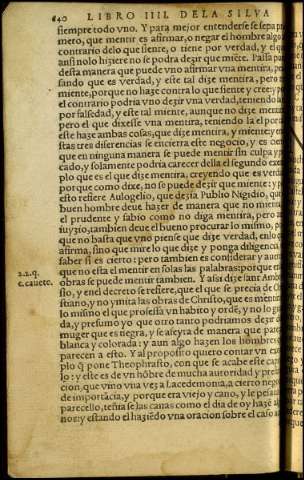 640 LIBRO IIII. DELA SILVA
siempre todo vno. Y para mejor entenderse se sepa pri
mero, que mentir es afirmar, o negar el hombre algo
contrario delo que siente, o tiene por verdad, y el q
ansi nolo hiziere no se podra dezir que miente. Passa pues
desta manera que puede vno afirmar vna mentira,
sando que es verdad, y este tal dize mentira, pero
miente, porque no haze contra lo que siente y cree: y p
el contrario podria vno dezir vna verdad, teniendo
por falsedad, y este tal miente, aunque no dize men
pero el que dixesse vna mentira, teniendo la el por
este haze ambas cosas, que dize mentira, y miente, y en
stas tres diferencias se encierra este negocio, y es cier
que en ninguna manera se puede mentir sin culpa y
cado, y solamente podria carecer della el segundo exe
plo que es el que dize mentira, creyendo que es verda
porque como dixe, no se puede dezir que miente: y p
esto refiere Aulogelio, que dezia Publio Nigidio, que
buen hombre deue hazer de manera que no mien
el prudente y sabio como no diga mentira, pero a
juyzio, tambien deue el bueno procurar lo mismo, p
que no basta que vno piense que dize verdad, enlo q
afirma, sino que mire lo que dize y ponga diligencia
saber si es cierto: pero tambien es considerar y auer
que no esta el mentir en solas las palabras: porque en
2.2.q. obras se puede mentir tambien. Y assi dize sant Ambro
c. caueto. sio, y enel decreto se refiere, que el que se precia de Chri
stiano, y no ymita las obras de Christo, que es mentir
lo mismo el que professa vn habito y orde, y no lo gu
da, y presumo yo que otro tanto podriamos dezir d
muger que es negra, y se afeyta de manera que pare
blanca y colorada: y aun algo hazen los hombres q
parecen a esto. Y al proposito quiero contar vn exe
plo q pone Theophrasto, con que se acabe este capi
lo: y este es de vn hõbre de mucha autoridad y pre
cion, que vino vna vez a Lacedemonia, a cierto nego
de importãcia, y porque era viejo y cano, y le pesau
parecello, teñia se las canas como el dia de oy hazẽ al
nos: y estando el haziẽdo vna oracion sobre el caso a